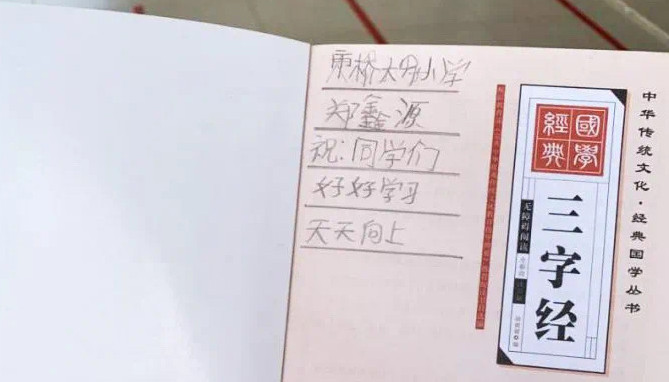 东桥大明小学
郑鑫源
祝:同学们
好好学习
天天向上
國學
經典
三字经
无障碍阅读
中华传统文化·经典国学丛书